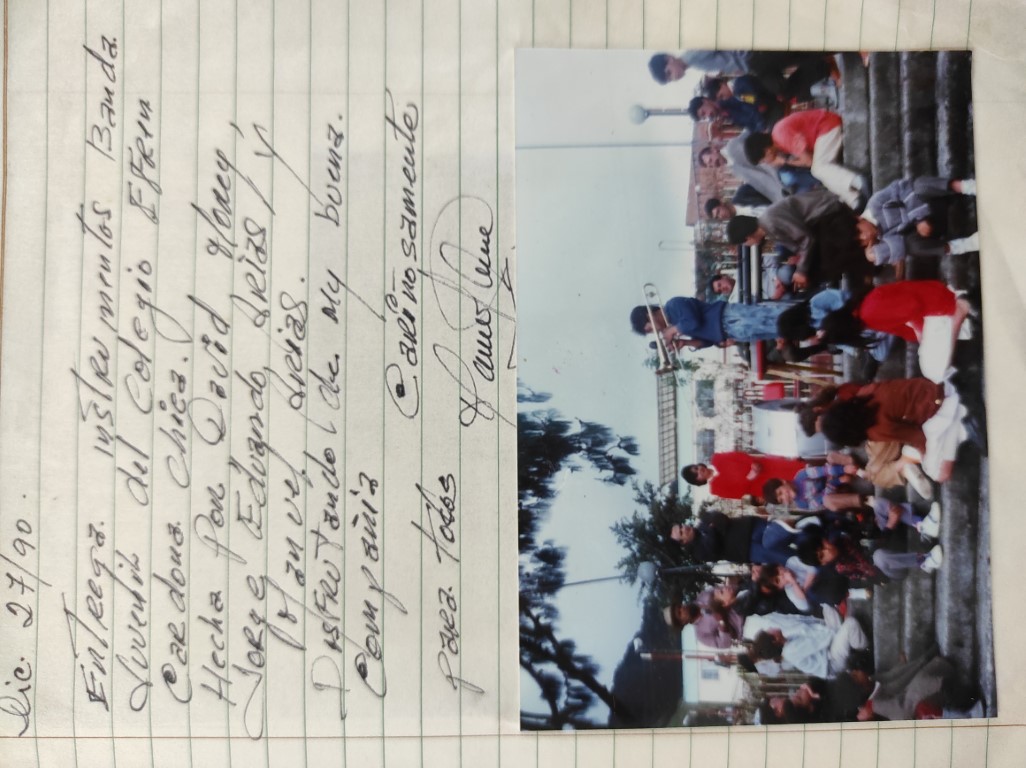 Dic. 27/90.
Entrega. instrumentos Banda.
Juvenil del Colegio Efren
Cardona Chica.
Hecha por David
Jorge Eduardo Arias y
Manuel Arias.
Disfrutando de my buena.
Compañia
Cariñosamente
para todos